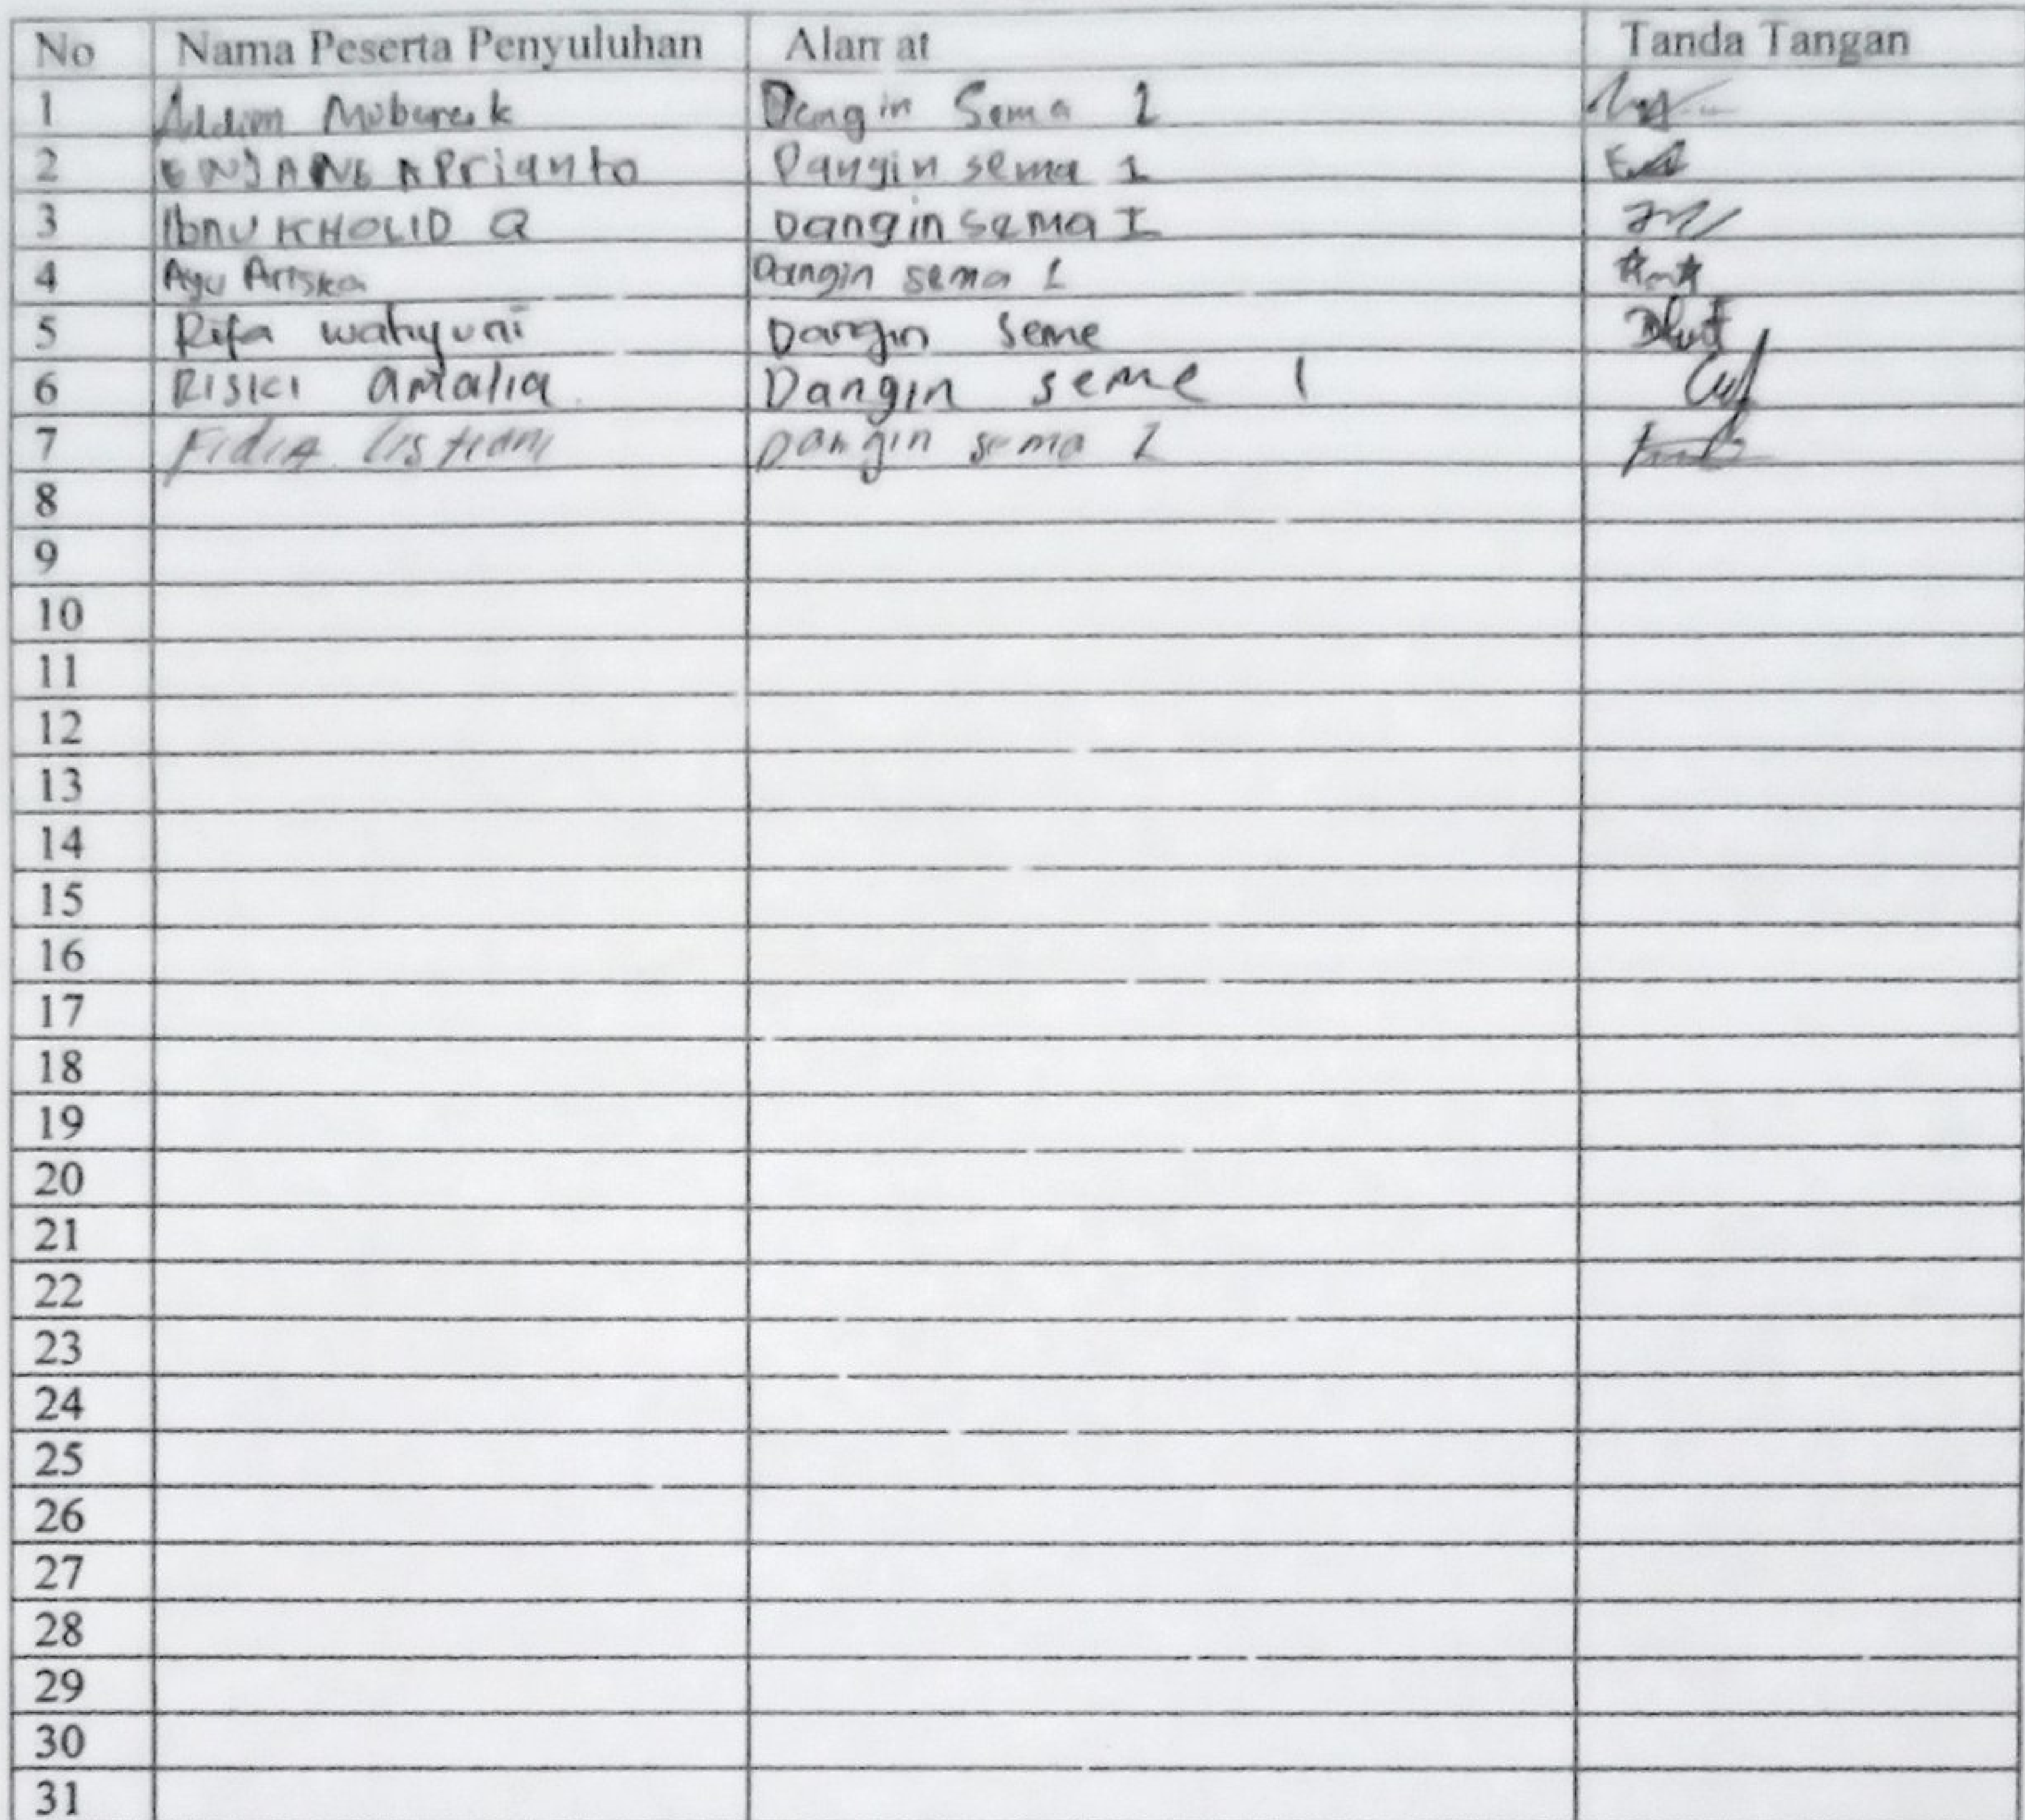 No Nama Peserta Penyuluhan Alamat Tanda Tangan
1 Mubarak Dangin Sema 1
2 ENJANG APrianto Dangin sema 1
3 Ibnu KHOLID Q Dangin sema I
4 Ayu Ariska Dangin sema 1
5 Rifa wahyuni Dangin Seme
6 RISKI amalia Dangin seme 1
7 Dangin sema 1
8
9
10
11
12
13
14
15
16
17
18
19
20
21
22
23
24
25
26
27
28
29
30
31